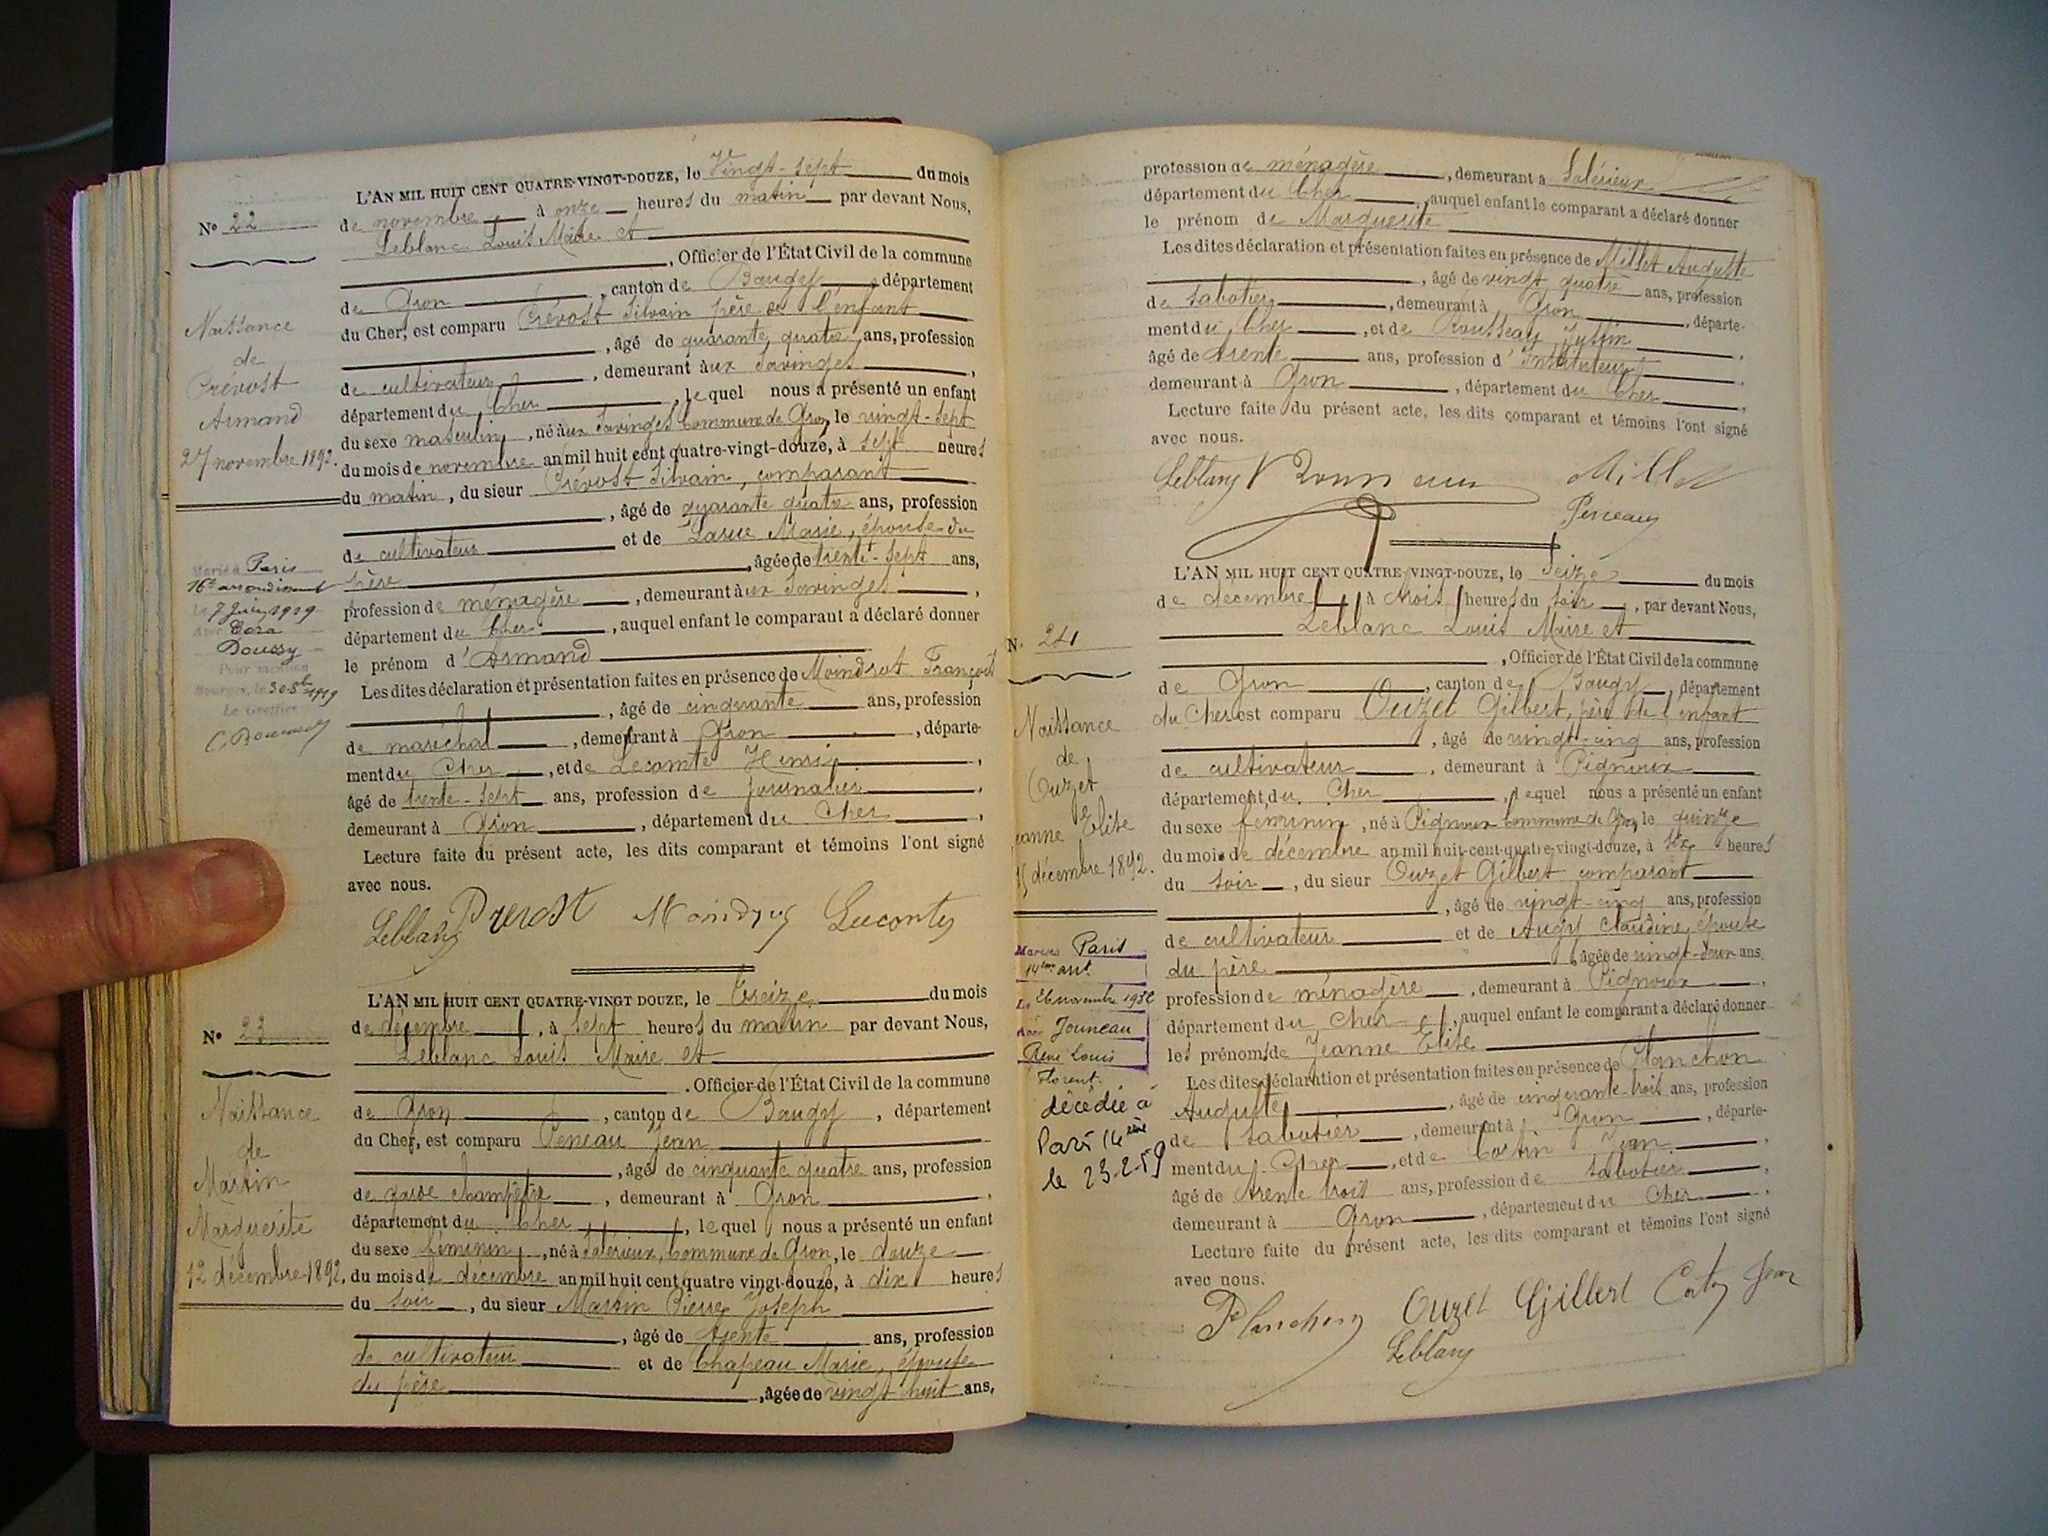 L'AN MIL HUIT CENT QUATRE-VINGT-DOUZE, le Vingt-sept du mois
de novembre à onze heures du matin par devant Nous,
Leblanc Louis Maire et
, Officier de l'État Civil de la commune
de Gron, canton de Baugy, département
du Cher, est comparu Prévost Silvain père de l'enfant
, âgé de quarante quatre ans, profession
de cultivateur, demeurant aux Savinges,
département du Cher, lequel nous a présenté un enfant
du sexe masculin, né aux Savinges Commune de Gron, le vingt-sept
du mois de novembre an mil huit cent quatre-vingt-douze, à sept heures
du matin, du sieur Prévost Silvain, comparant
, âgé de quarante quatre ans, profession
de cultivateur et de Marie, épouse du
père, âgée de trente-sept ans,
profession de ménagère, demeurant aux Savinges,
département du Cher, auquel enfant le comparant a déclaré donner
le prénom d'Armand
Les dites déclaration et présentation faites en présence de Moindrot François
, âgé de cinquante ans, profession
de maréchal, demeurant à Gron, départe-
ment du Cher, et de Lecomte Henri,
âgé de trente-sept ans, profession de journalier,
demeurant à Gron, département du Cher,
Lecture faite du présent acte, les dits comparant et témoins l'ont signé
avec nous.
Leblanc Prevost Moindrot Lecomte
No 22
Naissance
de
Prévost
Armand
27 novembre 1892.
Marié à Paris
16e arrondiment
le 7 Juin 1919
Avec Cora
Doussy
Pour mention
Bourges, le 30 8bre 1919
Le Greffier
L'AN MIL HUIT CENT QUATRE-VINGT DOUZE, le treize du mois
de décembre, à sept heures du matin par devant Nous,
Leblanc Louis Maire et
. Officier de l'État Civil de la commune
de Gron, canton de Baugy, département
du Cher, est comparu Peneau Jean
, âgé de cinquante quatre ans, profession
de garde champêtre, demeurant à Gron,
département du Cher, lequel nous a présenté un enfant
du sexe féminin, né à Salérieux, Commune de Gron, le douze
du mois de décembre an mil huit cent quatre vingt-douze, à dix heures
du soir, du sieur Martin Pierre Joseph
, âgé de trente ans, profession
de cultivateur et de Chapeau Marie, épouse
du père, âgée de vingt huit ans,
No 23
Naissance
de
Martin
Marguerite
12 décembre 1892.
profession de ménagère, demeurant à Salérieux
département du Cher, auquel enfant le comparant a déclaré donner
le prénom de Marguerite
Les dites déclaration et présentation faites en présence de Millet Auguste
, âgé de vingt quatre ans, profession
de sabotier, demeurant à Gron, départe-
ment du Cher, et de Rousseau Justin,
âgé de trente ans, profession d'Instituteur,
demeurant à Gron, département du Cher,
Lecture faite du présent acte, les dits comparant et témoins l'ont signé
avec nous.
Leblanc Millet
L'AN MIL HUIT CENT QUATRE-VINGT-DOUZE, le Seize du mois
de décembre à trois heures du soir, par devant Nous,
Leblanc Louis Maire et
, Officier de l'État Civil de la commune
de Gron, canton de Baugy, département
du Cher est comparu Ouzet Gilbert, père de l'enfant
, âgé de vingt-cinq ans, profession
de cultivateur, demeurant à Pignoux
département du Cher, lequel nous a présenté un enfant
du sexe féminin, né à Pignoux Commune de Gron, le quinze
du mois de décembre an mil huit-cent-quatre-vingt-douze, à six heures
du soir, du sieur Ouzet Gilbert comparant
, âgé de vingt-cinq ans, profession
de cultivateur et de Augy Claudine, épouse
du père, âgée de vingt-deux ans
profession de ménagère, demeurant à Pignoux,
département du Cher, auquel enfant le comparant a déclaré donner
les prénoms de Jeanne Elise
Les dites déclaration et présentation faites en présence de Planchon
Auguste, âgé de cinquante-trois ans, profession
de sabotier, demeurant à Gron, départe-
ment du Cher, et de Cortin Jean,
âgé de trente trois ans, profession de sabotier,
demeurant à Gron, département du Cher,
Lecture faite du présent acte, les dits comparant et témoins l'ont signé
avec nous.
Planchon Ouzet Gilbert Jean
Leblanc
N. 24
Naissance
de
Ouzet
Jeanne Elise
15 décembre 1892.
Mariée Paris
14ème arrt
Le 26 novembre 1932
Avec Jouneau
René Louis
Florent.
décédée à
Paris 14ème
le 23-2-59